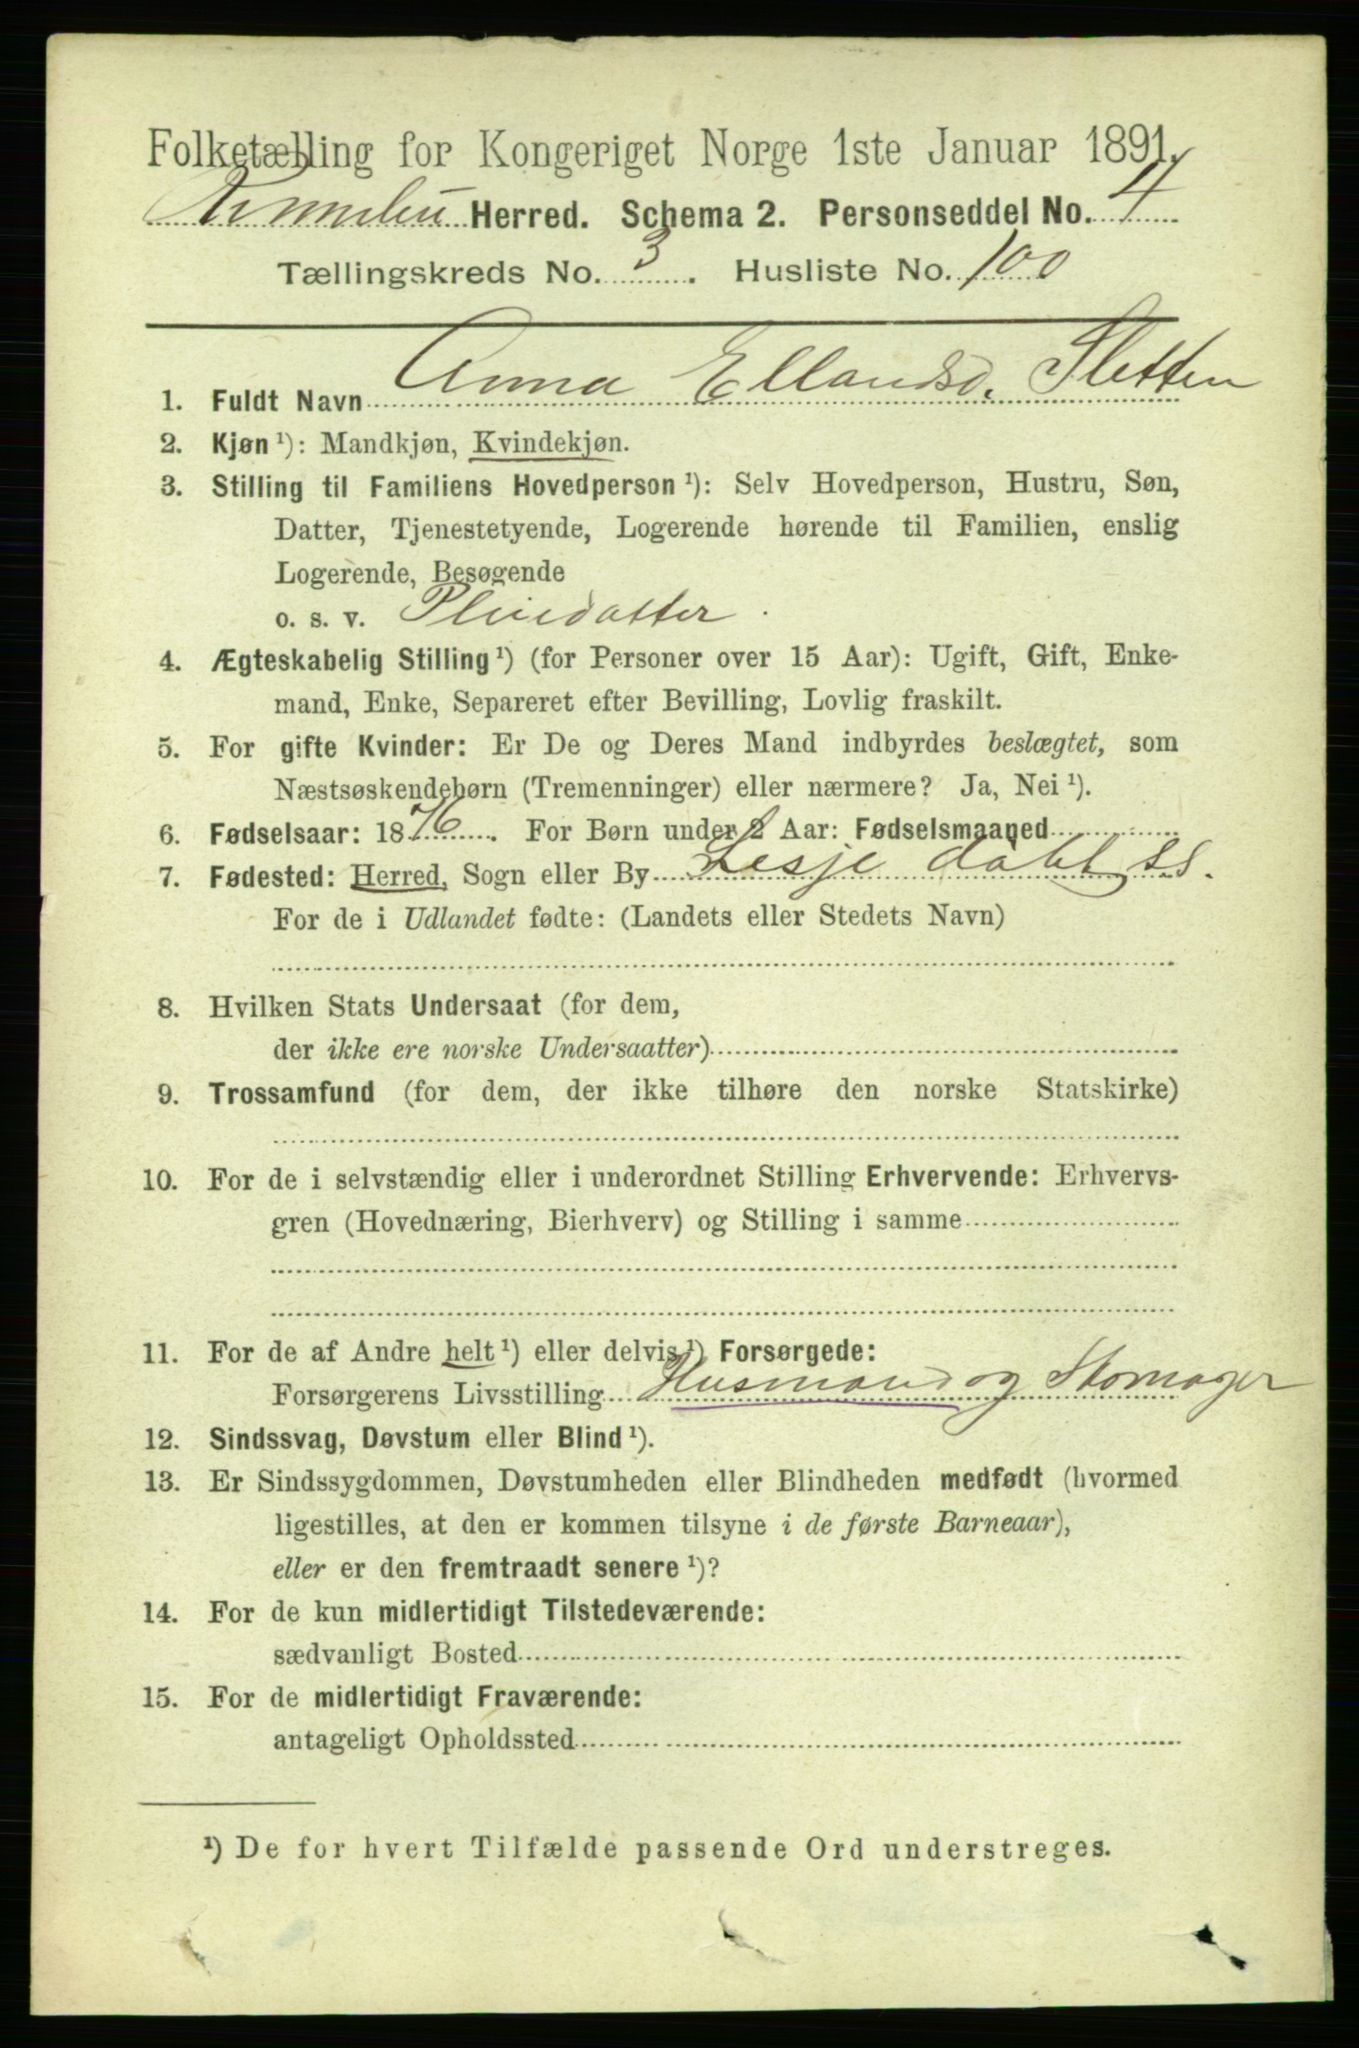 Folketælling for Kongeriget Norge 1ste Januar 1891.
Rennebu Herred. Schema 2. Personseddel No. 4
Tællingskreds No. 3. Husliste No. 100
1. Fuldt Navn Anna Ellandsd. Sletten
2. Kjøn ¹): Mandkjøn, Kvindekjøn.
3. Stilling til Familiens Hovedperson ¹): Selv Hovedperson, Hustru, Søn,
Datter, Tjenestetyende, Logerende hørende til Familien, enslig
Logerende, Besøgende
o. s. v. Pleiedatter
4. Ægteskabelig Stilling ¹) (for Personer over 15 Aar): Ugift, Gift, Enke-
mand, Enke, Separeret efter Bevilling, Lovlig fraskilt.
5. For gifte Kvinder: Er De og Deres Mand indbyrdes beslægtet, som
Næstsøskendebørn (Tremenninger) eller nærmere? Ja, Nei ¹).
6. Fødselsaar: 1876. For Børn under 2 Aar: Fødselsmaaned
7. Fødested: Herred, Sogn eller By Lesje
For de i Udlandet fødte: (Landets eller Stedets Navn)
8. Hvilken Stats Undersaat (for dem,
der ikke ere norske Undersaatter)
9. Trossamfund (for dem, der ikke tilhøre den norske Statskirke)
10. For de i selvstændig eller i underordnet Stilling Erhvervende: Erhvervs-
gren (Hovednæring, Bierhverv) og Stilling i samme
11. For de af Andre helt ¹) eller delvis ¹) Forsørgede:
Forsørgerens Livsstilling Husmand og Skomager
12. Sindssvag, Døvstum eller Blind ¹).
13. Er Sindssygdommen, Døvstumheden eller Blindheden medfødt (hvormed
ligestilles, at den er kommen tilsyne i de første Barneaar),
eller er den fremtraadt senere ¹)?
14. For de kun midlertidigt Tilstedeværende:
sædvanligt Bosted
15. For de midlertidigt Fraværende:
antageligt Opholdssted
¹) De for hvert Tilfælde passende Ord understreges.